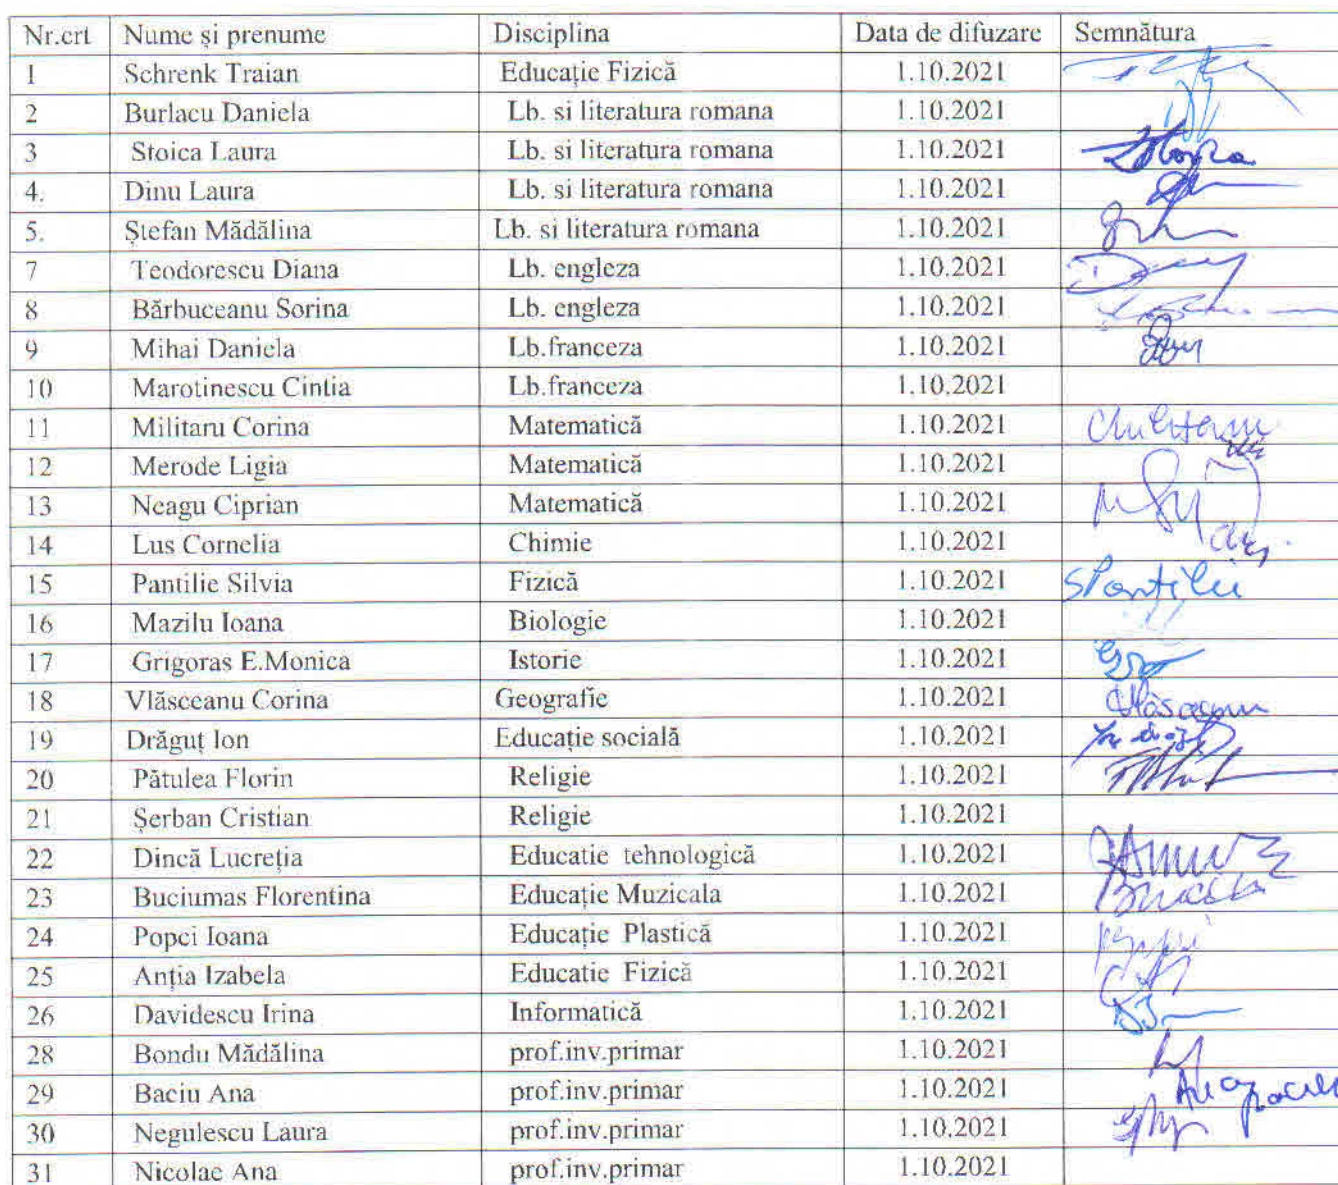 Nr.crt Nume și prenume Disciplina Data de difuzare Semnătura
1 Schrenk Traian Educație Fizică 1.10.2021
2 Burlacu Daniela Lb. si literatura romana 1.10.2021
3 Stoica Laura Lb. si literatura romana 1.10.2021
4. Dinu Laura Lb. si literatura romana 1.10.2021
5. Ștefan Mădălina Lb. si literatura romana 1.10.2021
7 Teodorescu Diana Lb. engleza 1.10.2021
8 Bărbuceanu Sorina Lb. engleza 1.10.2021
9 Mihai Daniela Lb.franceza 1.10.2021
10 Marotinescu Cintia Lb.franceza 1.10.2021
11 Militaru Corina Matematică 1.10.2021
12 Merode Ligia Matematică 1.10.2021
13 Neagu Ciprian Matematică 1.10.2021
14 Lus Cornelia Chimie 1.10.2021
15 Pantilie Silvia Fizică 1.10.2021
16 Mazilu Ioana Biologie 1.10.2021
17 Grigoras E.Monica Istorie 1.10.2021
18 Vlăsceanu Corina Geografie 1.10.2021
19 Drăguț Ion Educație socială 1.10.2021
20 Pătulea Florin Religie 1.10.2021
21 Șerban Cristian Religie 1.10.2021
22 Dincă Lucreția Educatie tehnologică 1.10.2021
23 Buciumas Florentina Educație Muzicala 1.10.2021
24 Popci Ioana Educație Plastică 1.10.2021
25 Anția Izabela Educatie Fizică 1.10.2021
26 Davidescu Irina Informatică 1.10.2021
28 Bondu Mădălina prof.inv.primar 1.10.2021
29 Baciu Ana prof.inv.primar 1.10.2021
30 Negulescu Laura prof.inv.primar 1.10.2021
31 Nicolae Ana prof.inv.primar 1.10.2021